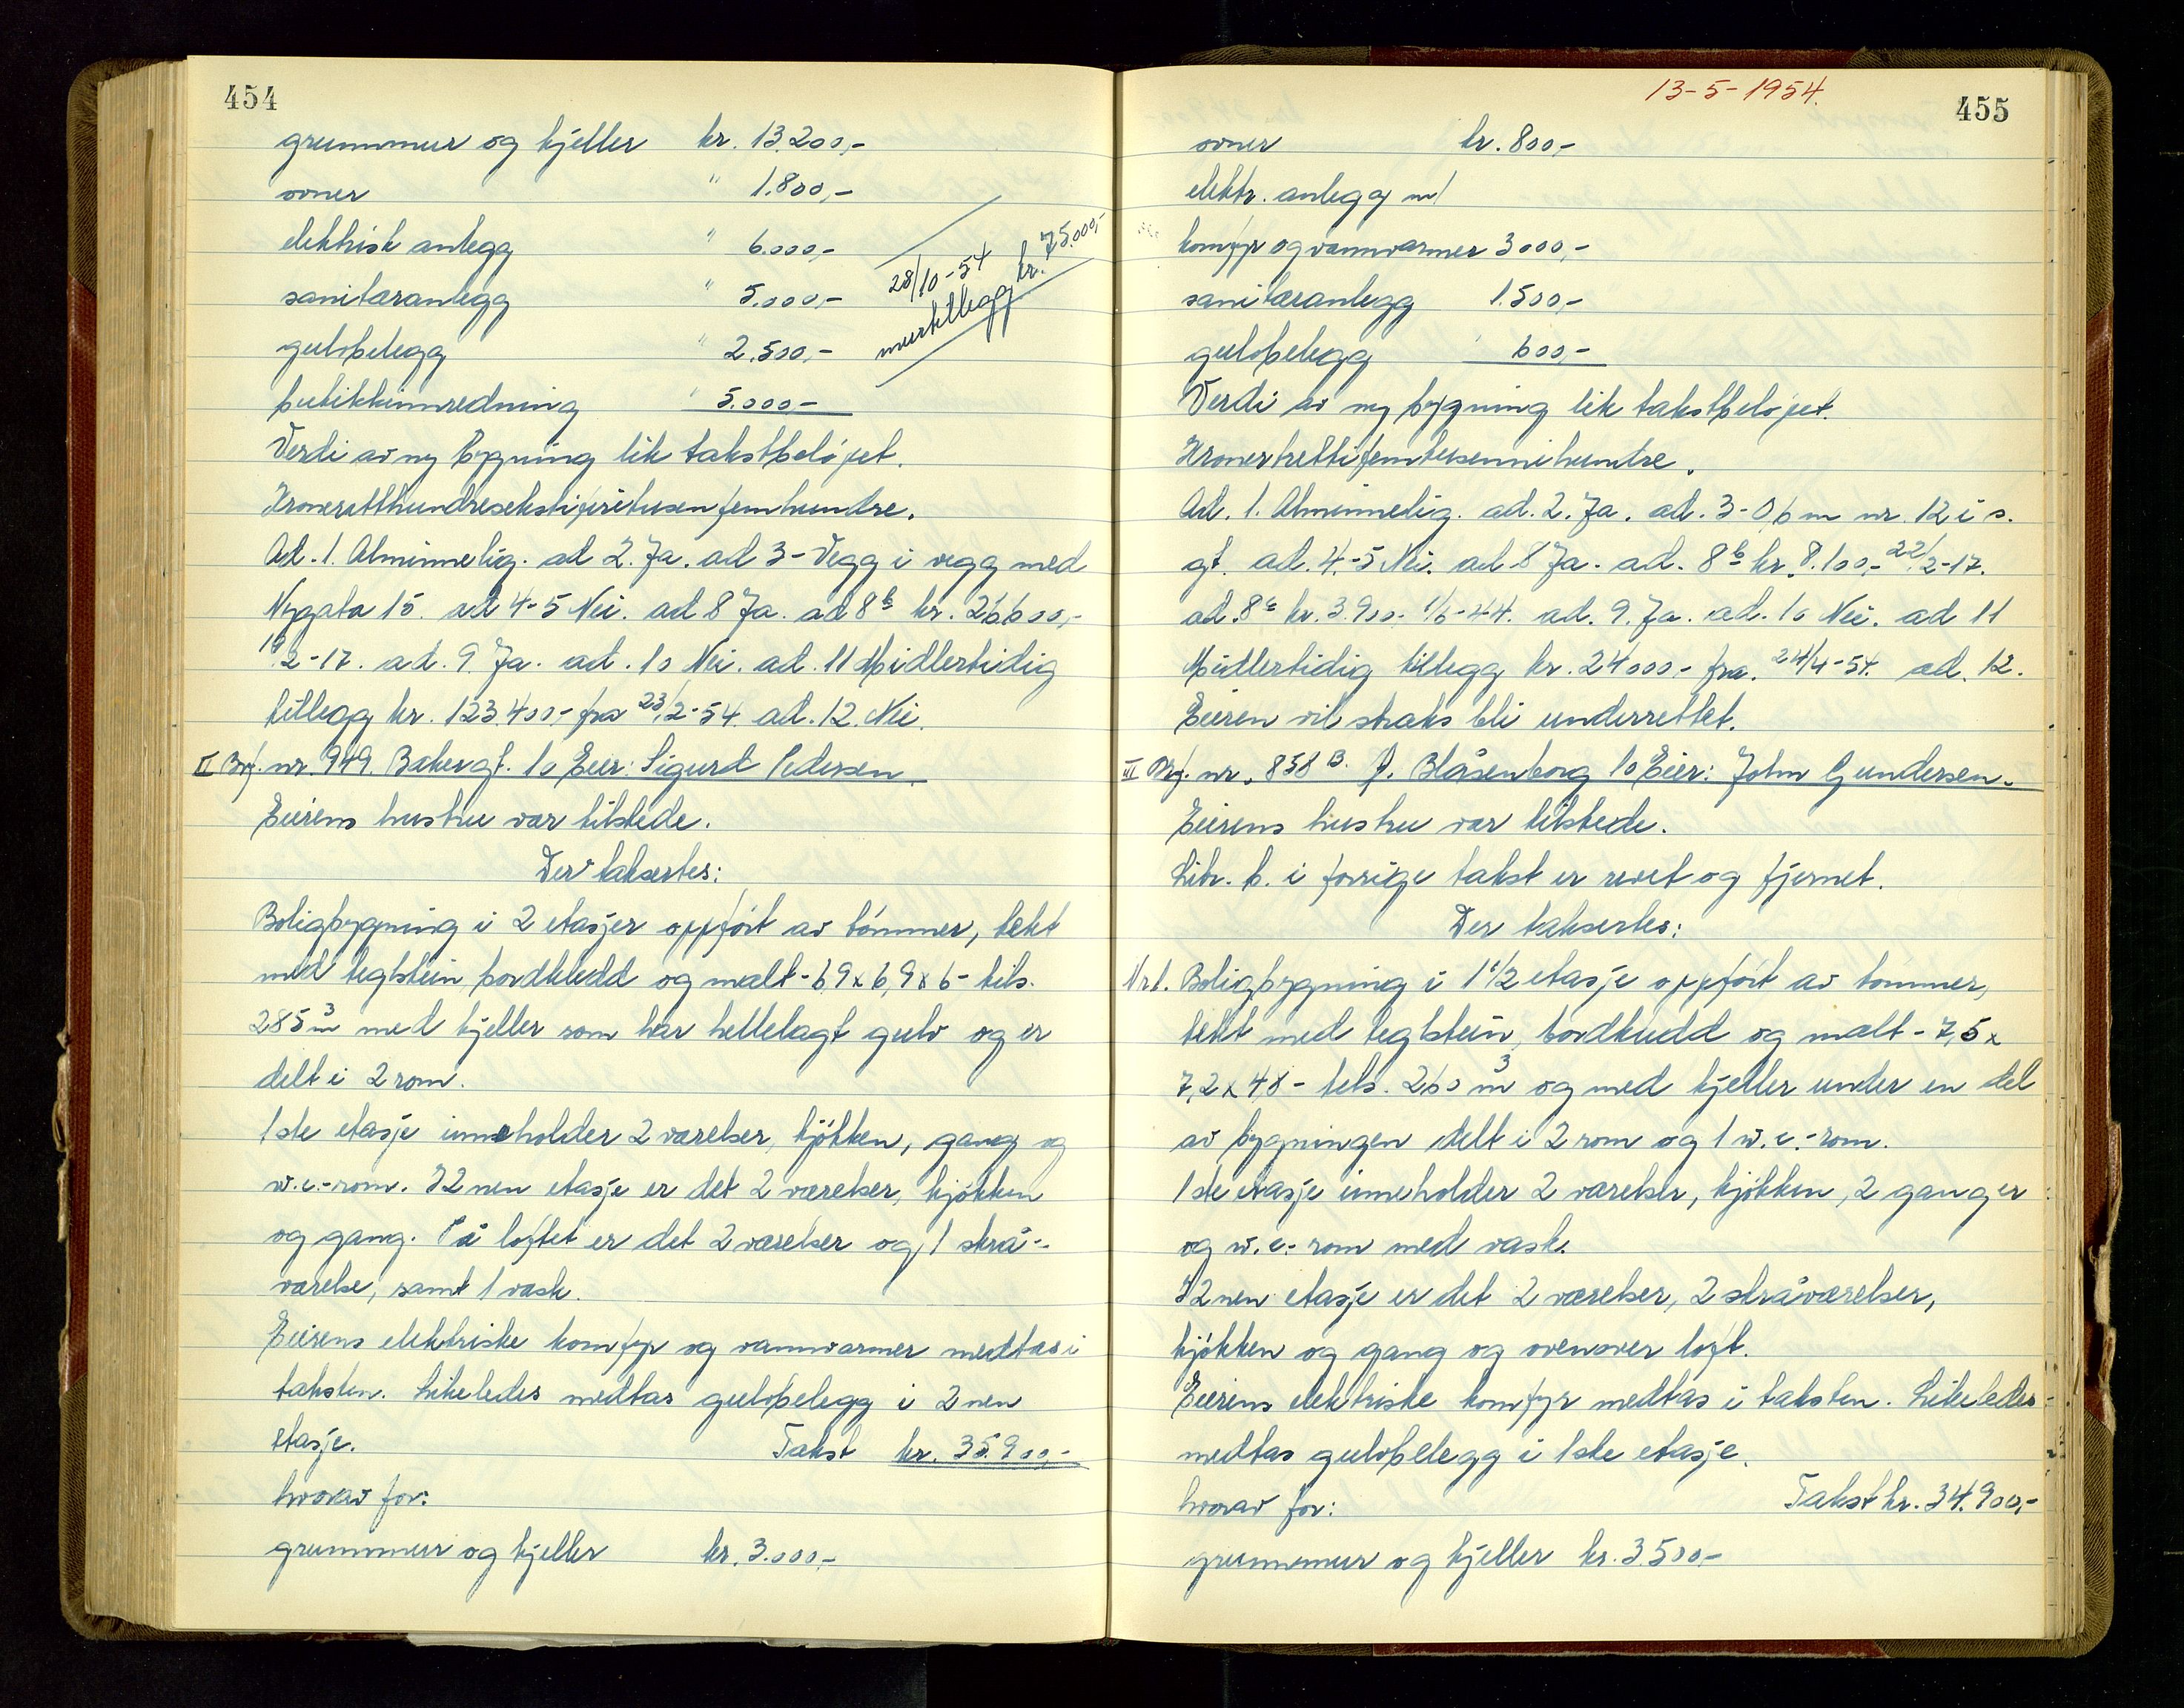 454
grunnmur og kjeller kr. 13.200,-
ovner " 1.800,-
elektrisk anlegg " 6.000,-
sanitæranlegg " 5.000,-
gulvbelegg " 2.500,-
butikkinnredning " 5.000,-
28/10-54
murtillegg kr. 75.000,-
Verdi av ny bygning lik takstbeløpet.
Kroneratthundresekstifiretusenfemhundre.
Ad. 1. Alminnelig. ad 2. Ja. ad 3 - Vegg i vegg med
Nygata 15. ad 4-5 Nei. ad 8 Ja. ad 8b kr. 26600,-
19/2-17. ad. 9. Ja. ad. 10 Nei. ad. 11 Midlertidig
tillegg kr. 123.400,- fra 23/2-54. ad. 12. Nei.
II Brf. nr. 949. Bakergt. 10 Eier: Sigurd Pedersen.
Eierens hustru var tilstede.
Der taksertes:
Boligbygning i 2 etasjer oppført av tømmer, tekt
med teglstein, bordkledd og malt - 6,9 x 6,9 x 6 - tils.
285 m3 med kjeller som har hellelagt gulv og er
delt i 2 rom.
1ste etasje inneholder 2 værelser, kjøkken, gang og
w.c.-rom. I 2nen etasje er det 2 værelser, kjøkken
og gang. På loftet er det 2 værelser og 1 skrå-
værelse, samt 1 vask.
Eierens elektriske komfyr og vannvarmer medtas i
taksten. Likeledes medtas gulvbelegg i 2nen
etasje. Takst kr. 35.900,-
hvorav for:
grunnmur og kjeller kr. 3.000,-
13-5-1954.
455
ovner kr. 800,-
elektr. anlegg m/
komfyr og vannvarmer 3000,-
sanitæranlegg 1.500,-
gulvbelegg " 600,-
Verdi av ny bygning lik takstbeløpet.
Kronertrettifemtusennihundre.
Ad. 1. Alminnelig. ad. 2. Ja. ad. 3 - 0,6 m nr. 12 i s.
gt. ad. 4.-5 Nei. ad 8 Ja. ad. 8b kr. 8.100,- 22/2-17.
ad. 8c kr. 3.900.- 1/6-44. ad. 9. Ja. ad. 10 Nei. ad 11
Midlertidig tillegg kr. 24000,- fra. 24/4-54. ad. 12.
Eieren vil straks bli underrettet.
III Brf. nr. 858 B. Ø. Blåsenborg 10 Eier: John Gundersen.
Eierens hustru var tilstede.
Litr. b. i forrige takst er revet og fjernet.
Der taksertes:
Nr 1. Boligbygning i 1 1/2 etasje oppført av tømmer,
tekt med teglstein, bordkledd og malt - 7,5 x
7,2 x 4,8 - tils. 260 m3 og med kjeller under en del
av bygningen delt i 2 rom og 1 w.c.-rom.
1ste etasje inneholder 2 værelser, kjøkken, 2 ganger
og w.c.-rom med vask.
I 2nen etasje er det 2 værelser, 2 skråværelser,
kjøkken og gang og ovenover loft.
Eierens elektriske komfyr medtas i taksten. Likeledes
medtas gulvbelegg i 1ste etasje.
hvorav for: Takst kr. 34.900,-
grunnmur og kjeller kr. 3.500,-